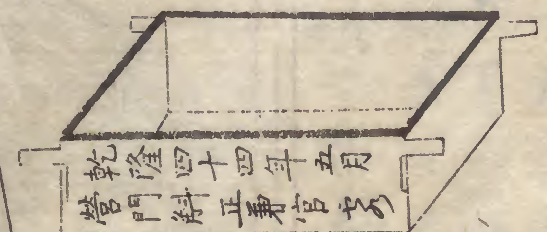 乾隆四十四年五月
營門斛正兼官